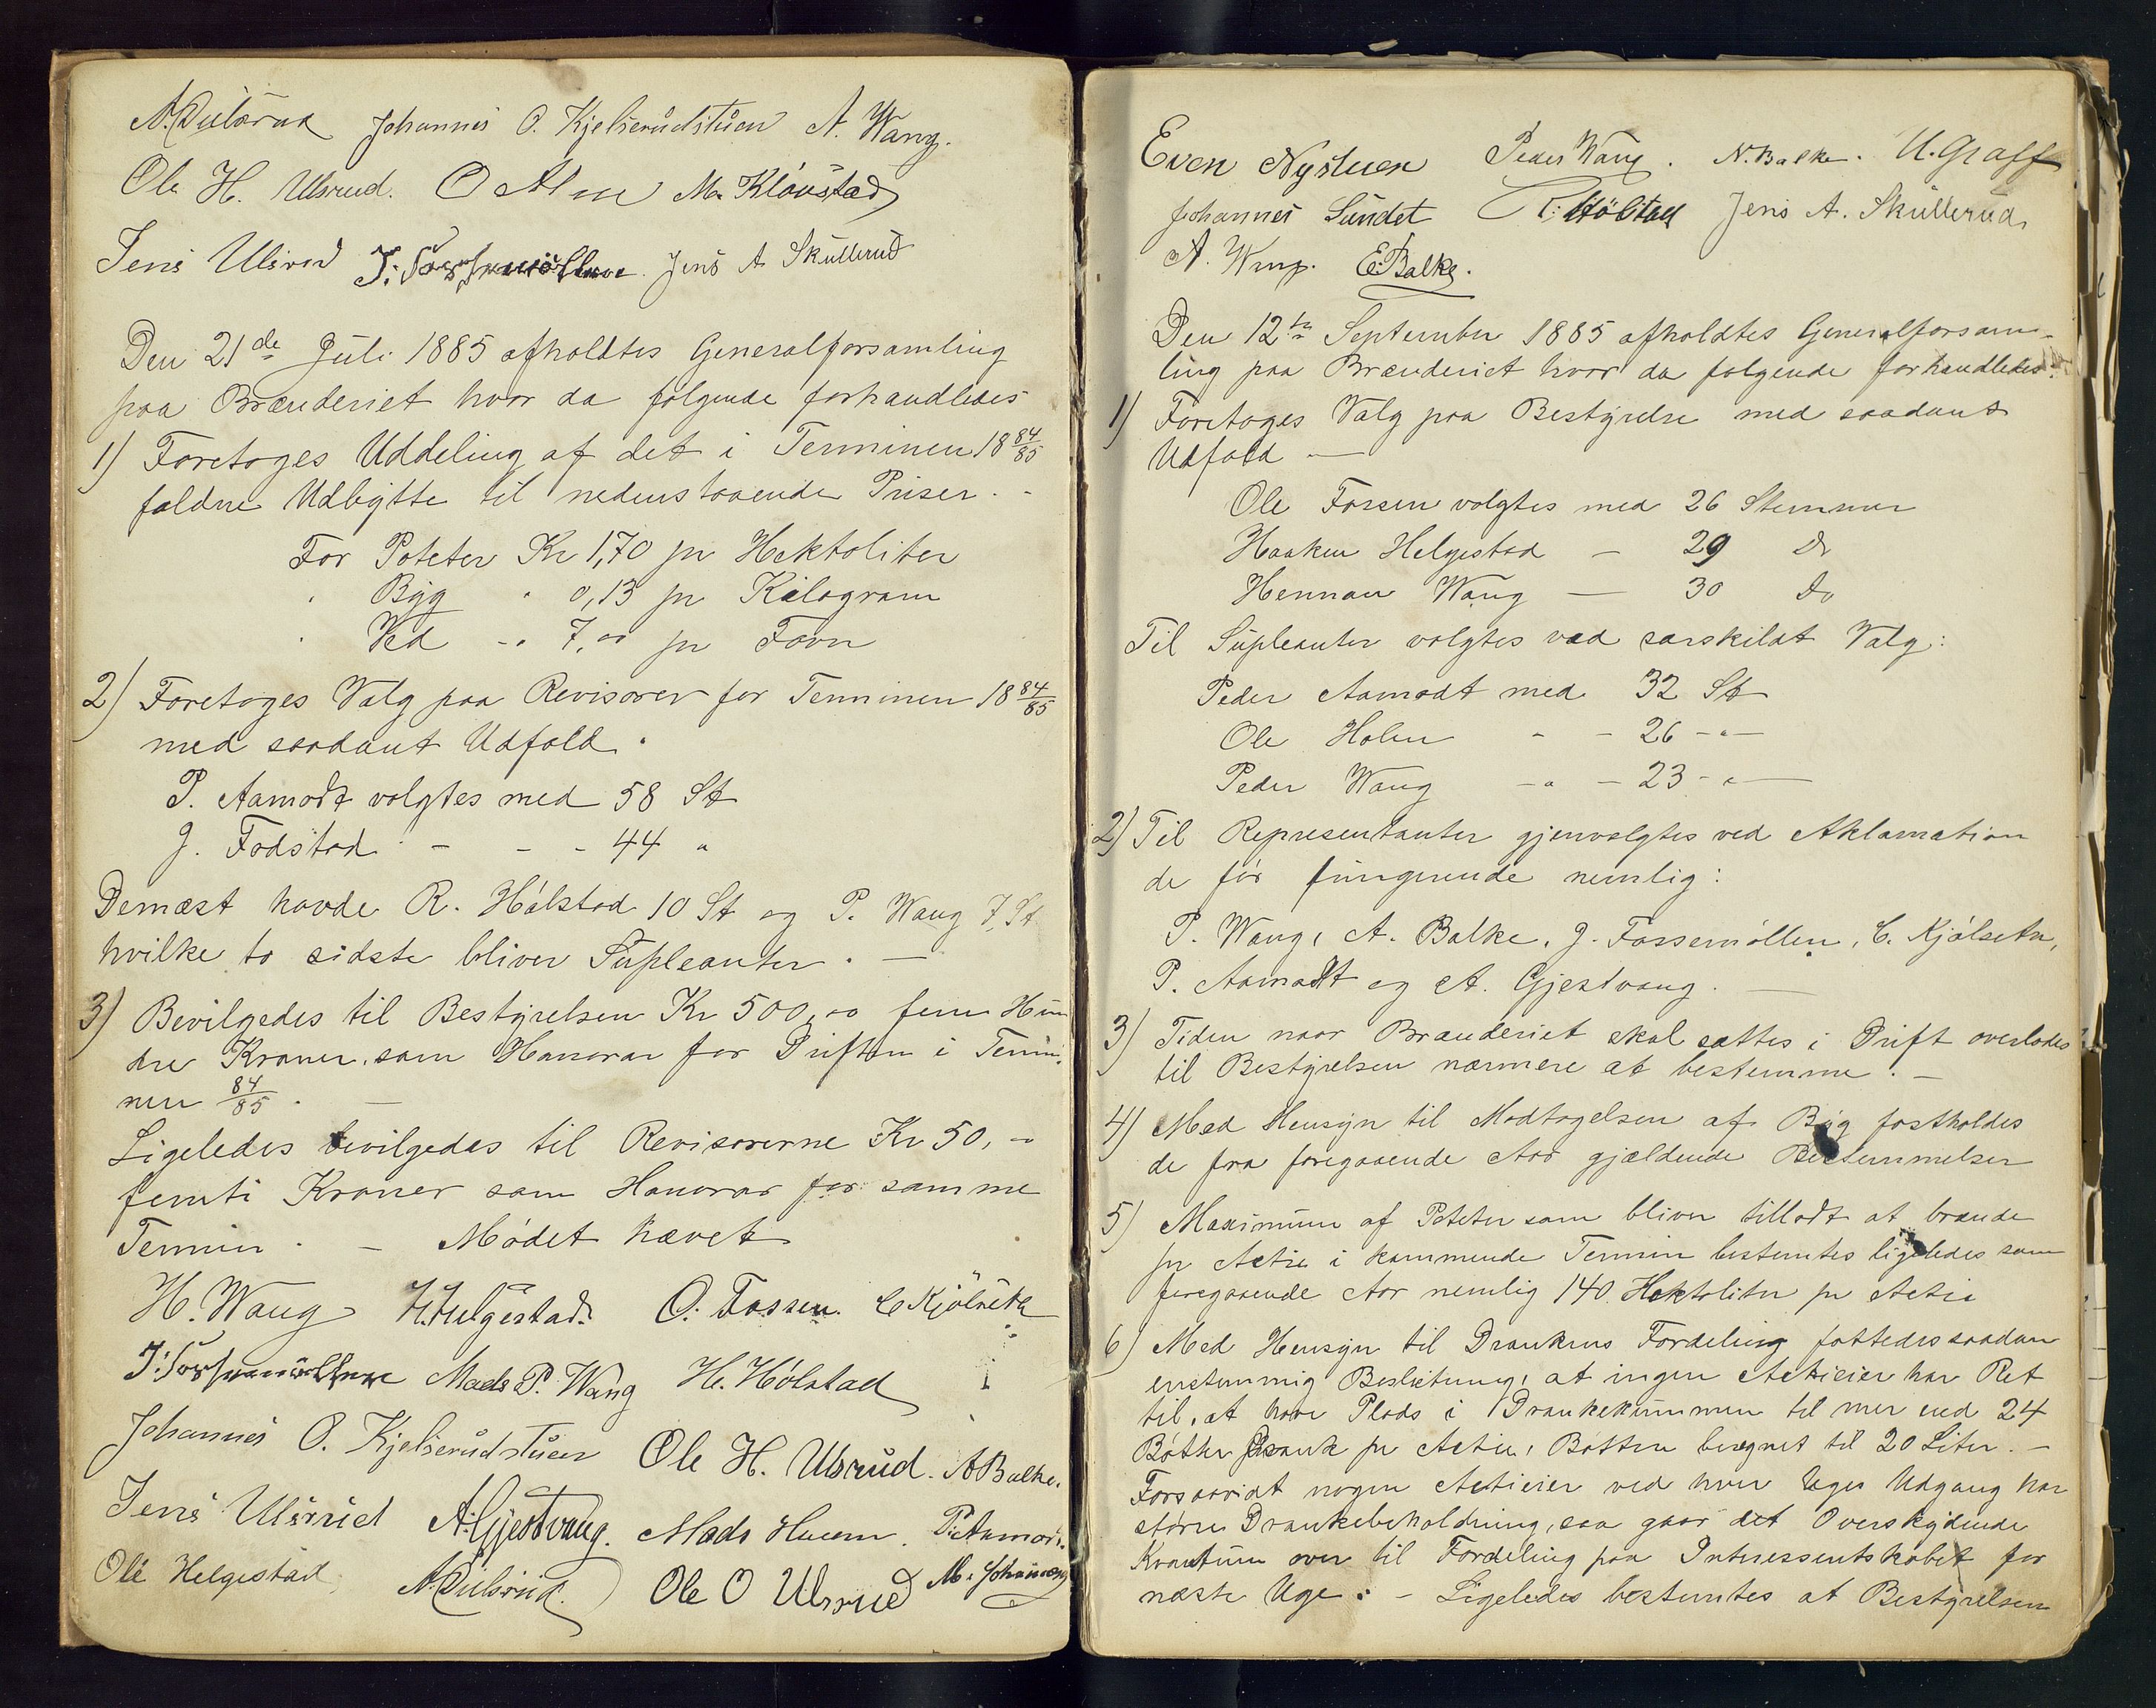 Johannes O. Kjelserudstuen A. Wang.
Ole H. Ulsrud. O Alm M. Kløvstad
Jens Ulsrud J. Fossemøllen. Jens A Skullerud
Den 21de Juli 1885 afholdtes Generalforsamling
paa Brænderiet hvor da følgende forhandledes
1) Foretoges Uddeling af det i Terminen 18 84/85
faldne Udbytte til nedenstaaende Priser. -
For Poteter Kr 1,70 pr Hektoliter
" Byg " 0,13 pr Kilogram
" Ved -" 7,00 pr Favn
2) Foretoges Valg paa Revisorer for Terminen 18 84/85
med saadant Udfald.
P. Aamodt valgtes med 58 St
J. Fodstad - - - 44 "
Dernæst havde R. Hølstad 10 St og P. Wang 7 St
hvilke to sidste bliver Supleanter. —
3) Bevilgedes til Bestyrelsen Kr 500,00 fem Hun
dre Kroner, som Honorar for Driften i Termi-
nen 84/85. —
Ligeledes bevilgedes til Revisorerne Kr 50,-
femti Kroner som Honorar for samme
Termin. - Mødet hævet
H. Wang H. Helgestad. O. Fossen. C Kjølseth
J. Fossemøllen Mads P. Wang H. Hølstad
Johannes O. Kjelserudstuen Ole H. Ulsrud. A Balke.
Jens Ulsrud A. Gjestvang. Mads Huem. P. Aamodt.
Ole Helgestad, Ole O Ulsrud
Even Nystuen Peder Wang. N. Balke. U. Graff
Johannes Sundet R. Hølstad Jens A. Skullerud
A. Wang. E. Balke.
Den 12te September 1885 afholdtes Generalforsam-
ling paa Brænderiet hvor da følgende forhandledes.
1) Foretoges Valg paa Bestyrelse med saadant
Udfald —
Ole Fossen valgtes med 26 Stemmer
Haaken Helgestad — 29 Do
Herman Wang — 30 Do
Til Supleanter valgtes ved særskildt Valg:
Peder Aamodt med 32 St
Ole Holen - - 26 -"-
Peder Wang -" - 23 -"-
2) Til Representanter gjenvalgtes ved Aklamation
de før fungerende nemlig:
P. Wang, A. Balke, J. Fossemøllen, C. Kjølseth,
P. Aamodt og A. Gjestvang. —
3) Tiden naar Brænderiet skal sættes i Drift overlodes
til Bestyrelsen nærmere at bestemme. —
4) Med Hensyn til Modtagelsen af Byg fastholdes
de fra foregaaende Aar gjældende Bestemmelser
5) Maximum af Poteter som bliver tilladt at brænde
pr Actie i kommende Termin bestemtes ligeledes som
foregaaende Aar nemlig 140 Hektoliter pr Actie
6) Med Hensyn til Drankens Fordeling fattedes saadan
enstemmig Beslutning, at ingen Actieier har Ret
til, at have Plads i Drankekummen til mer end 24
Bøtter Drank pr Actie, Bøtten beregnet til 20 Liter. —
Forsaavidt nogen Actieier ved hver Uges Udgang har
større Drankebeholdning, saa gaar det Overskydende
Kvantum over til Fordeling paa Interessentskabet for
næste Uge. - Ligeledes bestemtes at Bestyrelsen